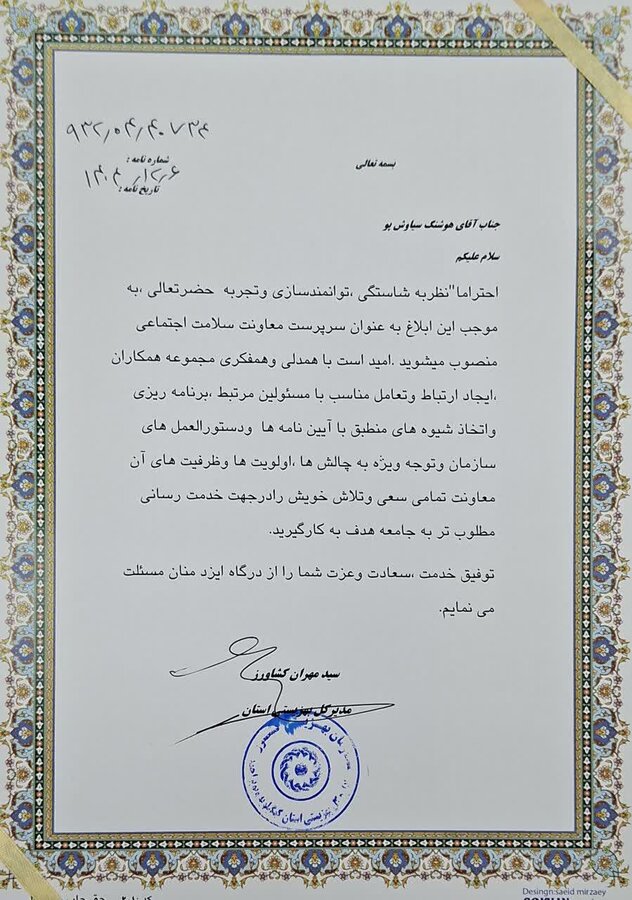 ۹۳۲/۰۴/۴۰۷۳۴
شماره نامه :
۱۴۰۲/۱۲/۶
تاریخ نامه :
بسمه تعالی
جناب آقای هوشنگ سیاوش پو
سلام علیکم
احتراما"نظربه شاستگی ،توانمندسازی وتجربه حضرتعالی ،به
موجب این ابلاغ به عنوان سرپرست معاونت سلامت اجتماعی
منصوب میشوید .امید است با همدلی وهمفکری مجموعه همکاران
،ایجاد ارتباط وتعامل مناسب با مسئولین مرتبط ،برنامه ریزی
واتخاذ شیوه های منطبق با آیین نامه ها ودستورالعمل های
سازمان وتوجه ویژه به چالش ها ،اولویت ها وظرفیت های آن
معاونت تمامی سعی وتلاش خویش رادرجهت خدمت رسانی
مطلوب تر به جامعه هدف به کارگیرید.
توفیق خدمت ،سعادت وعزت شما را از درگاه ایزد منان مسئلت
می نمایم.
سید مهران کشاورز
مدیرکل بهزیستی استان
Desingn:saeid mirzaey